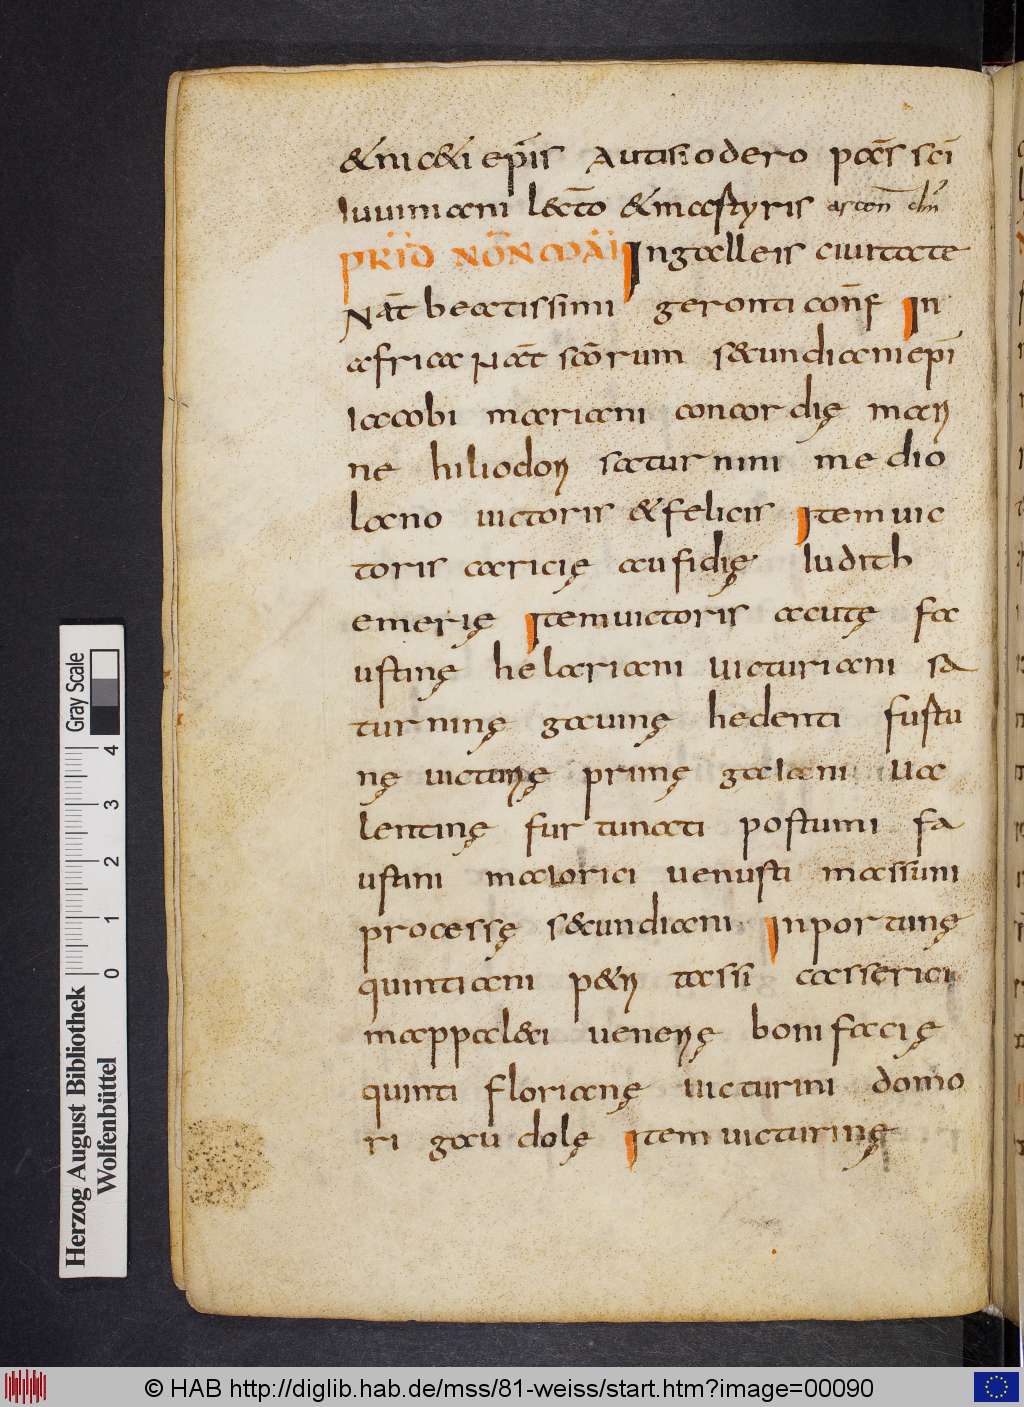 &nic&i ep̄is Autisiodero pas̄ sc̄i
Iuuiniani lect̄o &martyris ascen̄ dn̄i
PRID NON̄ MAĪ In galleis ciuitate
Nat̄ beatissimi geronti conf̄ In
africa Nat̄ sc̄orum s&cundiani ep̄i
Iacobi mariani concordię mari
ne hiliodori saturnini medio
lano uictoris & felicis Item uic
toris caricię aufidię Iudith
emerię Item uictoris acutę fa
ustinę helariani uicturiani sa
turninę gauinę hedenti fustu
nę uicturię primę gaiani Ua
lentinę furtunati postumi fa
ustini maiorici uenusti massimi
processę s&cundiani Inportunę
quintiani p&ri tassi casserici
mappal&ci uenerię bonifacię
quinti florianę uicturini domo
ri gaudolę Item uicturinę
Gray Scale
4
3
2
1
0
Herzog August Bibliothek
Wolfenbüttel
© HAB http://diglib.hab.de/mss/81-weiss/start.htm?image=00090